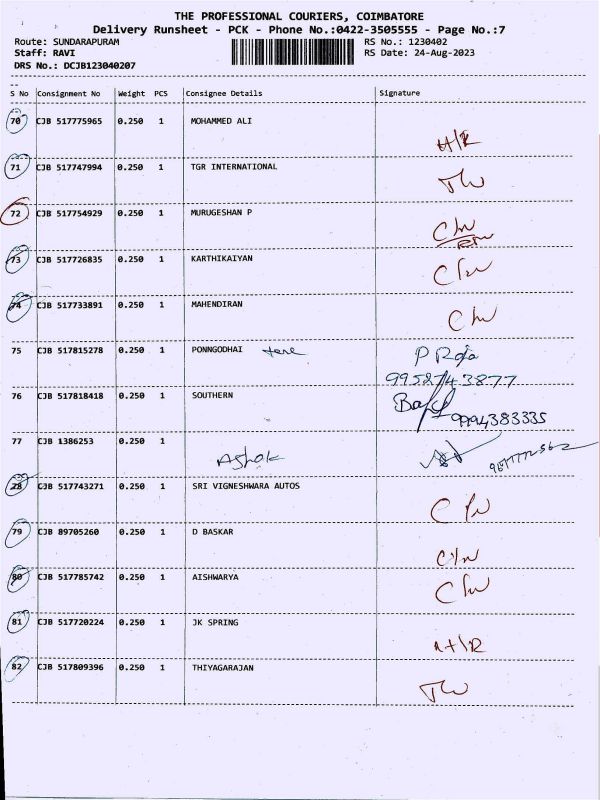 THE PROFESSIONAL COURIERS, COIMBATORE
Delivery Runsheet - PCK - Phone No.:0422-3505555 - Page No.:7
Route: SUNDARAPURAM RS No.: 1230402
Staff: RAVI RS Date: 24-Aug-2023
DRS No.: DCJB123040207
S No Consignment No Weight PCS Consignee Details Signature
70 CJB 517775965 0.250 1 MOHAMMED ALI
71 CJB 517747994 0.250 1 TGR INTERNATIONAL
72 CJB 517754929 0.250 1 MURUGESHAN P
73 CJB 517726835 0.250 1 KARTHIKAIYAN
74 CJB 517733891 0.250 1 MAHENDIRAN
75 CJB 517815278 0.250 1 PONNGODHAI
9952743877
76 CJB 517818418 0.250 1 SOUTHERN
9994383335
77 CJB 1386253 0.250 1
Ashok
78 CJB 517743271 0.250 1 SRI VIGNESHWARA AUTOS
79 CJB 89705260 0.250 1 D BASKAR
80 CJB 517785742 0.250 1 AISHWARYA
81 CJB 517720224 0.250 1 JK SPRING
82 CJB 517809396 0.250 1 THIYAGARAJAN